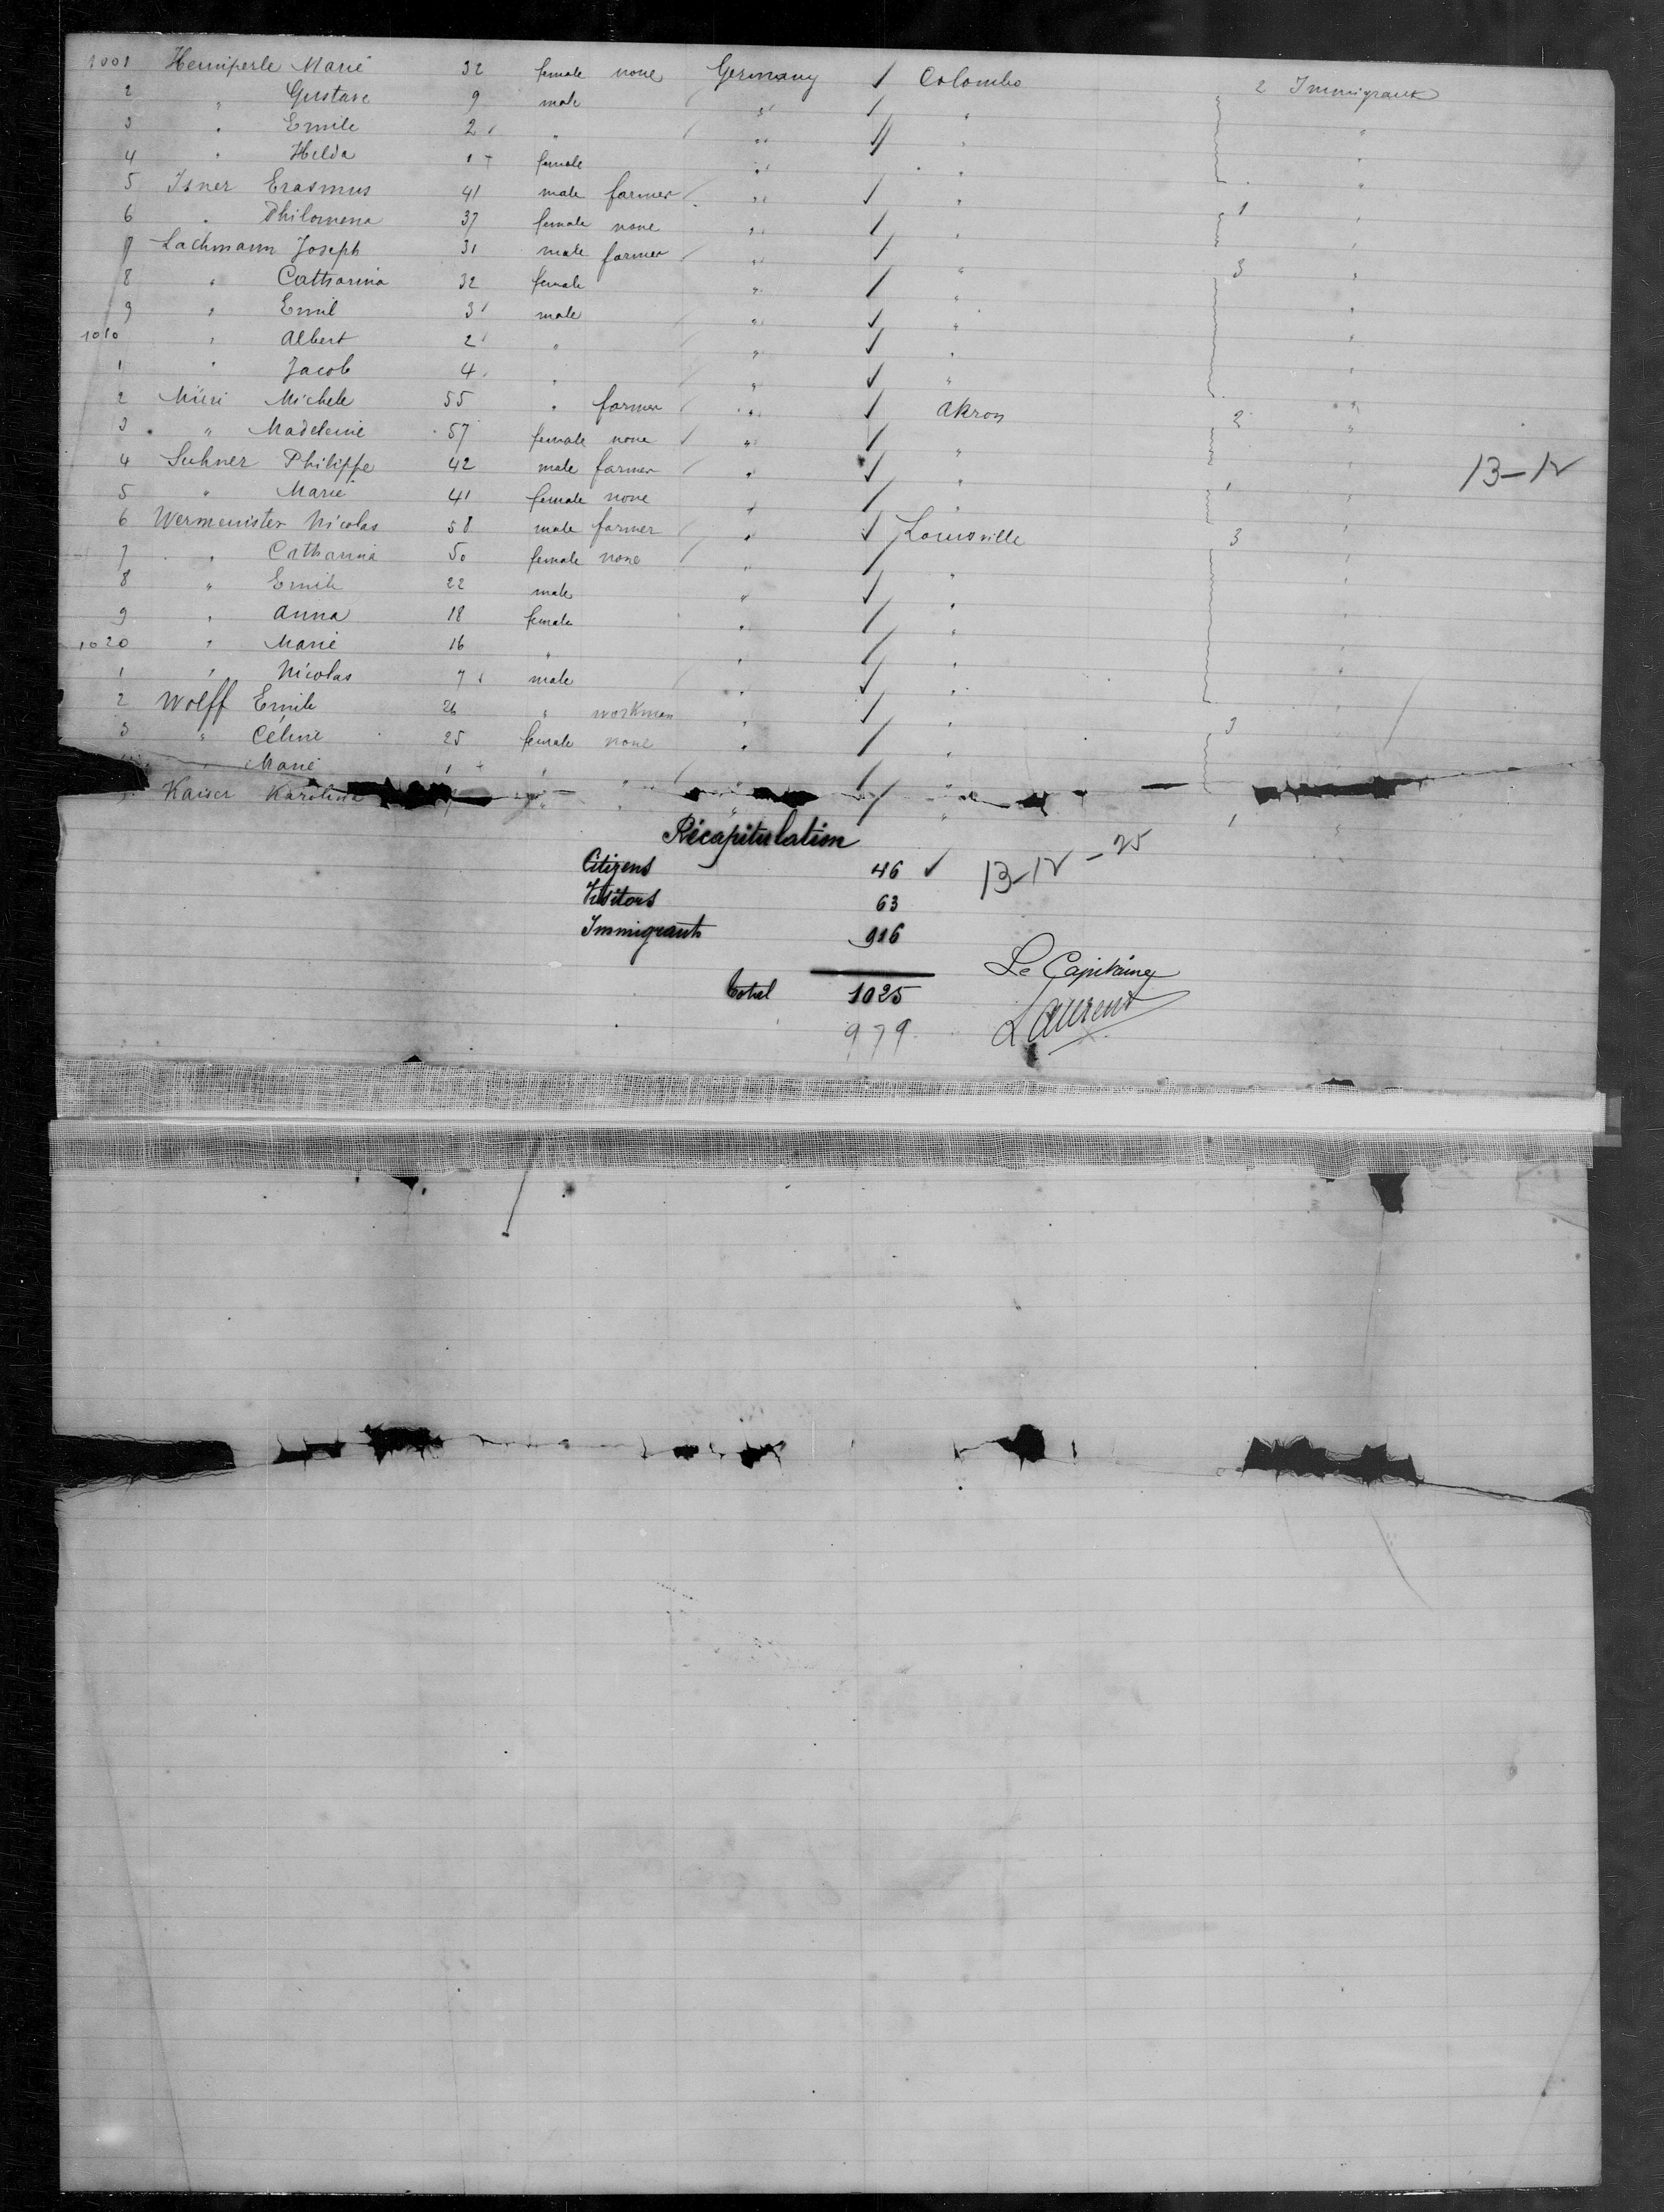 1001 Hemiperle Marie 32 female none Germany / Colombo 2 Immigrants
2 " Gustave 9 male " / " "
3 " Emile 2 " " / " "
4 " Hilda 1 + female " " "
5 Isner Erasmus 41 male farmer " / " 1 "
6 " Philomena 37 female none " / " "
7 Lachmann Joseph 31 male farmer " / " 3 "
8 " Catharina 32 female " / " "
9 " Emil 3 male " ✓ " "
1010 " Albert 2 " " ✓ " "
1 " Jacob 4 " " ✓ " "
2 Michele 55 " farmer " ✓ Akron 2 "
3 " Madeleine 57 female none " / " "
4 Suhner Philippe 42 male farmer " ✓ " 1 " 13-12
5 " Marie 41 female none " / " "
6 Wermeister Nicolas 58 male farmer " ✓ Louisville 3 "
7 " Catharina 50 female none " / " "
8 " Emile 22 male " ✓ " "
9 " Anna 18 female " / " "
1020 " Marie 16 " " / " "
1 " Nicolas 7 male " ✓ " "
2 Wolff Emile 26 " workman " / " 3 "
3 " Céline 25 female none " / " "
" Marie 1 + " " " / " "
Kaiser Karolina " " " / " 1 "
Récapitulation
Citizens 46 ✓ 13-12-25
Visitors 63
Immigrants 916
Le Capitaine
total 1025
Laurent
979